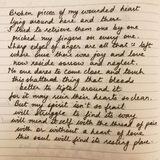 Broken pieces of my wounded heart
lying around here and there
I tried to retrieve them one by one
pricked my fingers on every one.
Sharp edges of anger are all that's left
where once there was joy and love
now reside sorrow and neglect.
No one dares to come close and touch
this shattered thing that bleeds
better to tiptoe around it
or it may ruin their heart so clean.
But my spirit isn't so frail
will struggle to find its way
will mend itself with the thread of pain
with or without a heart of love
this soul will find its resting place.